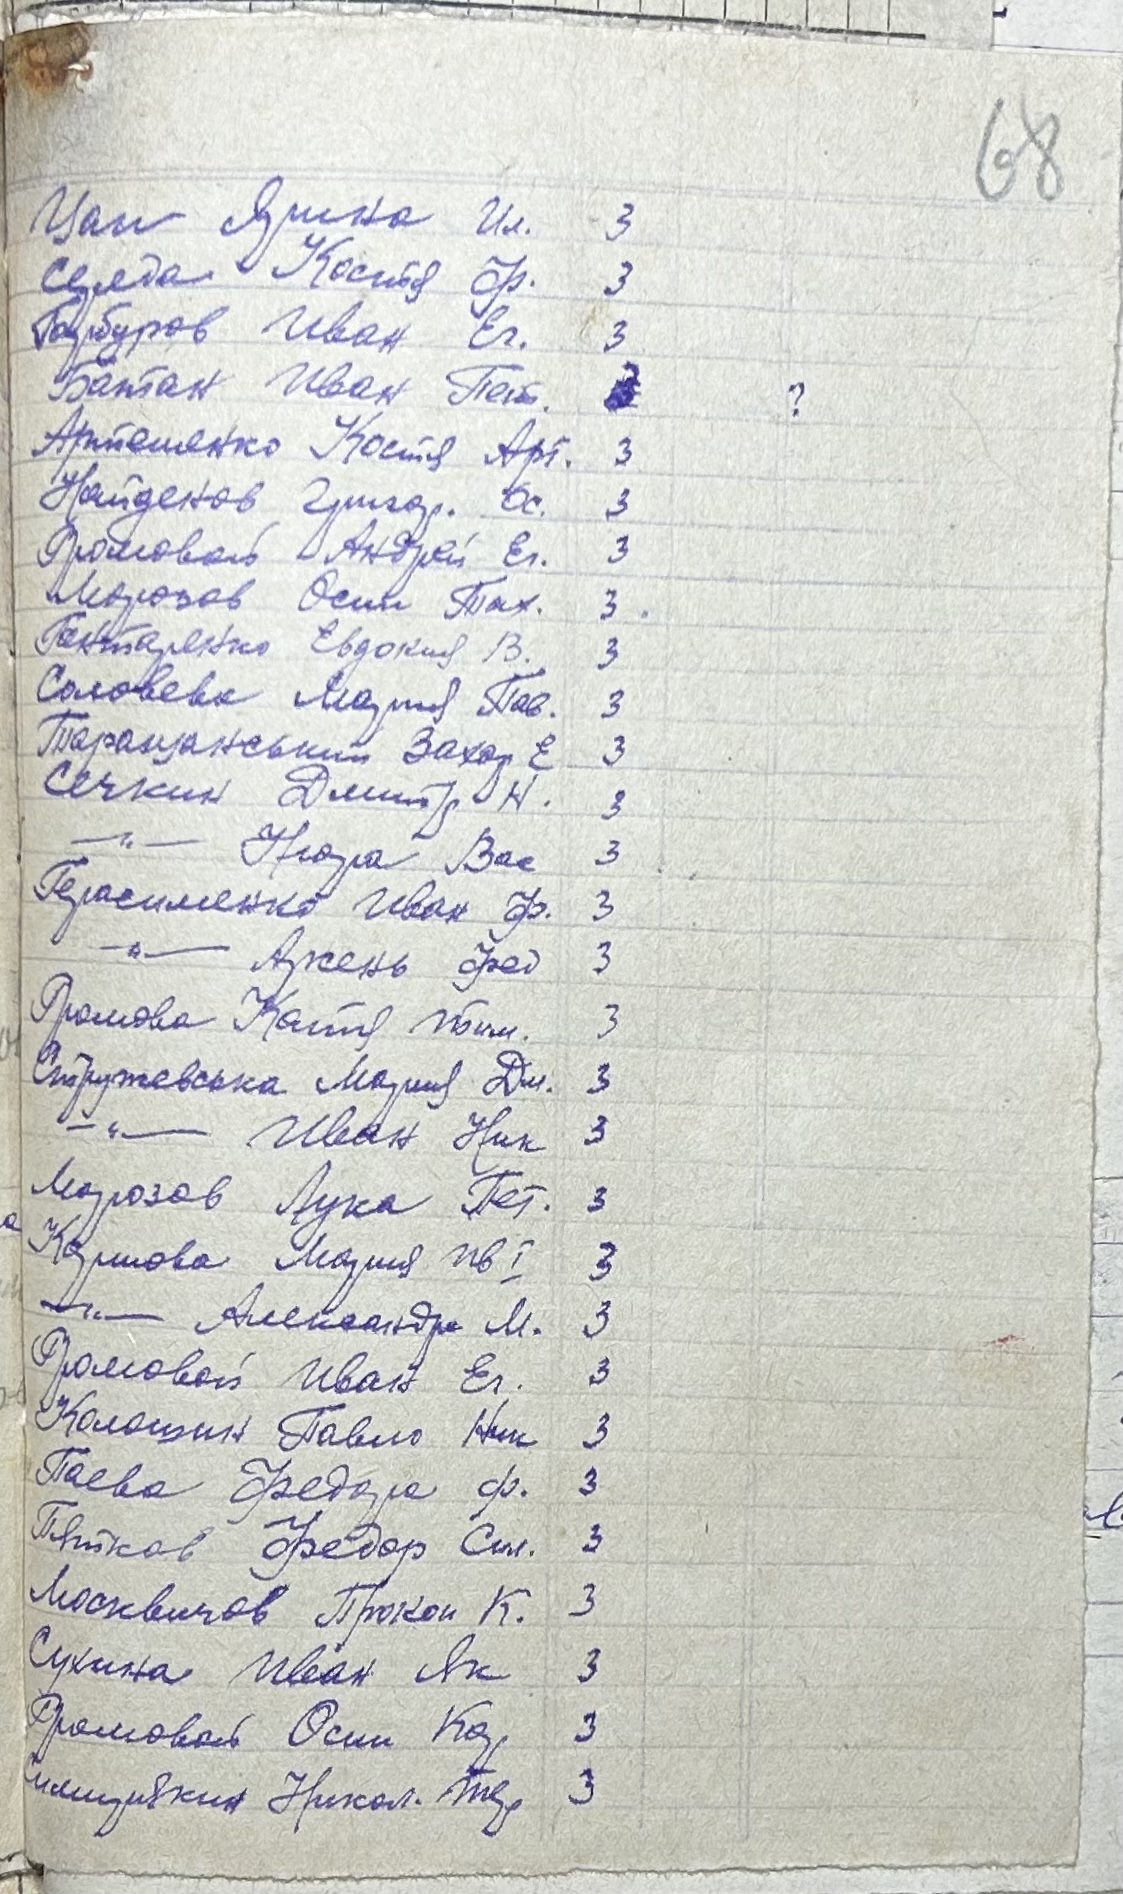 68
Цап Ярина Ил. 3
Серледа Костя Фр. 3
Гарбуров Иван Ег. 3
Бантан Иван Пет. 3 ?
Артеменко Костя Арт. 3
Найденов Григор. Ос. 3
Громовой Андрей Ег. 3
Морозов Осип Тих. 3
Гонтаренко Евдокия В. 3
Соловева Мария Пав. 3
Таращанський Захар Е 3
Сечкин Дмитр Н. 3
—"— Нюра Вас 3
Герасименко Иван Фр. 3
—"— Аксень Фед 3
Громова Катя 3
Стружевська Мария Дм. 3
—"— Иван Ник 3
Морозов Лука Пет. 3
Каримова Мария Ив I 3
—"— Александр М. 3
Громовой Иван Ег. 3
Колошин Павло Ник 3
Гаева Федора Ф. 3
Пятков Федор Сил. 3
Москвичов Прокоп К. 3
Сухина Иван Як 3
Громовой Осип Кар 3
Никол. 3